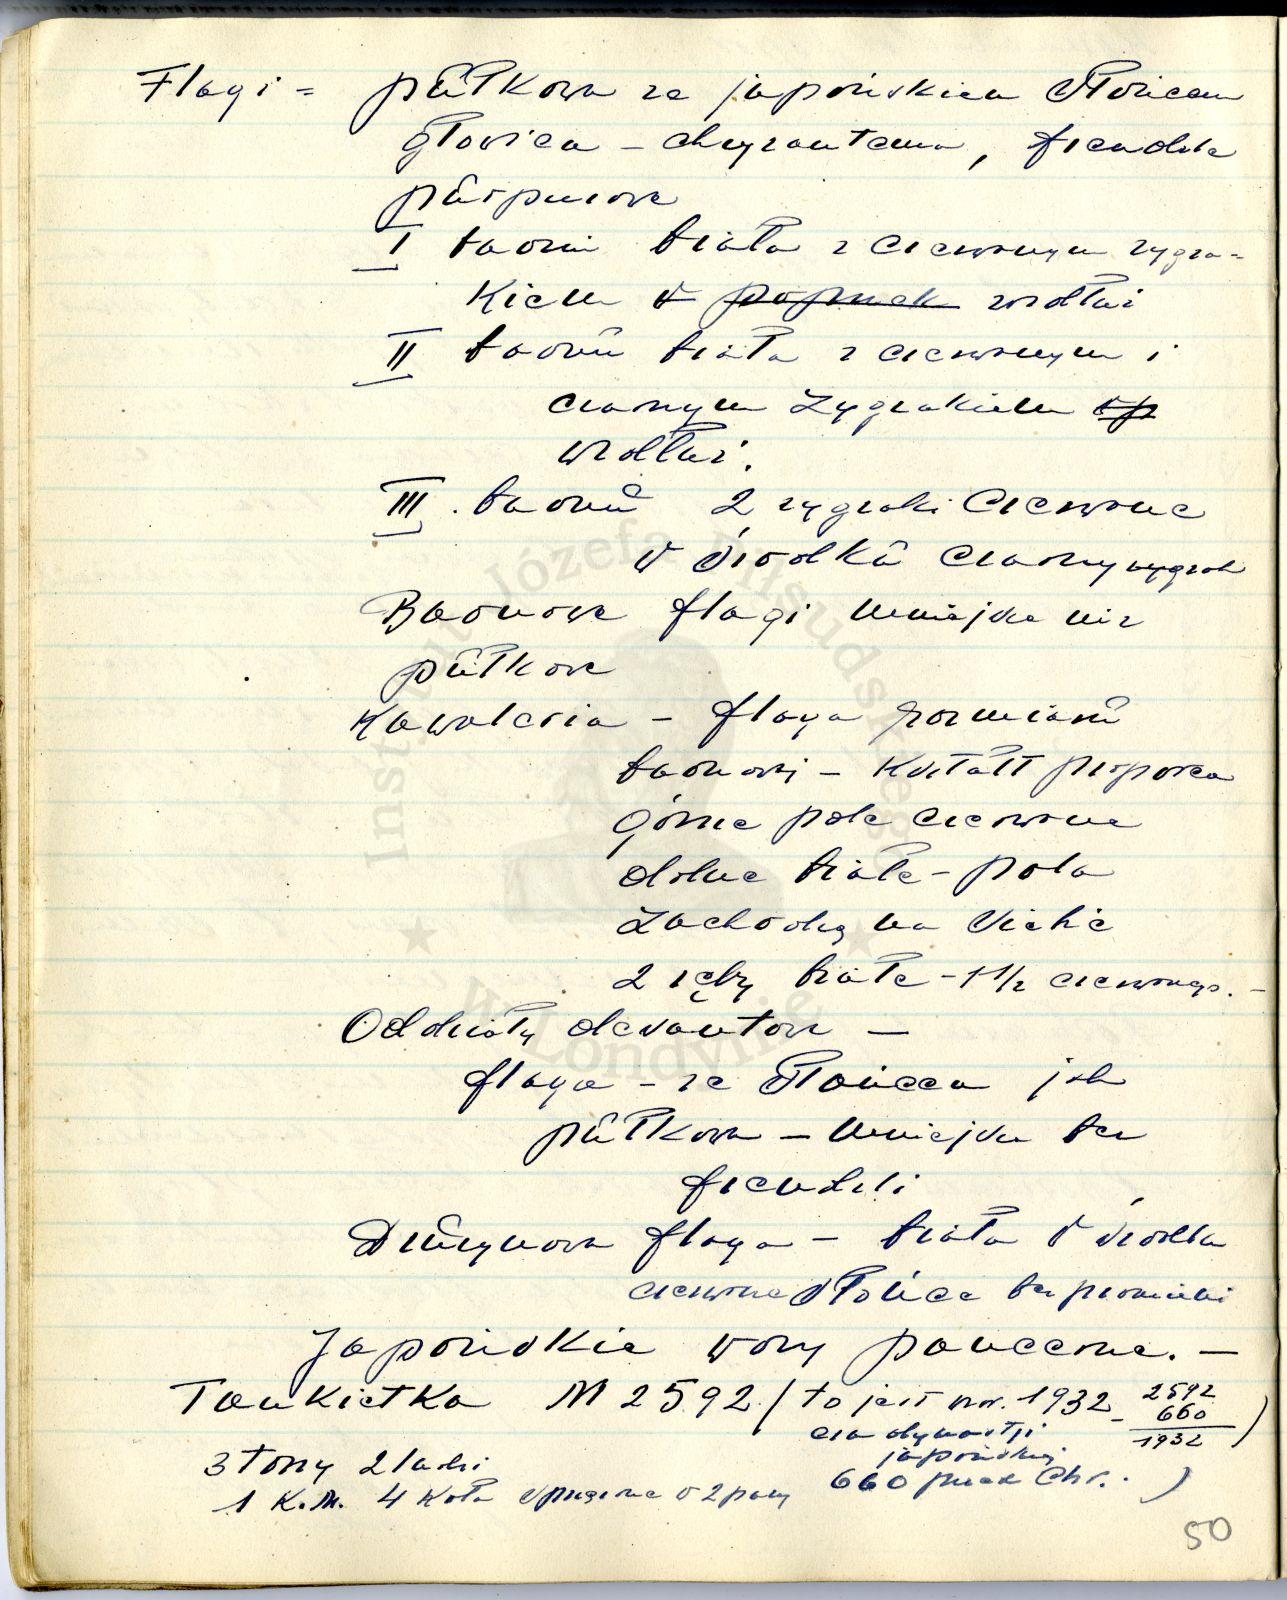 Flagi = pułkowa ze japońskiem słońcem
głowica – chryzantema, frendzle
purpurowe
I baonu biała z czerwonym zygza=
kiem w poprzek wzdłuż
II baonu biała z czerwonym i
czarnym zygzakiem wp
wzdłuż.
III. baonu 2 zygzaki czerwone
w środku czarny zygzak
Baonowe flagi mniejsze niż
pułkowe
Kawaleria – flaga rozmiaru
baonowej – kształt proporca
górne pole czerwone
dolne białe – pola
zachodzą na siebie
2 zęby białe – 1 1/2 czerwonego. –
Oddziały desantowe –
flaga – ze słońcem jak
pułkowa – mniejsza bez
frendzli
Drużynowa flaga – biała w środku
czerwone słońce bez promieni
Japońskie wozy pancerne. –
Tankietka M 2592 / to jest wzr. 1932 – 2592
660
1932 )
era dynastji
japońskiej
660 przed Chr. )
3 tony 2 ludzi
1 K.M. 4 koła sprzężone w 2 pary
50
Instytut Józefa Piłsudskiego
w Londynie